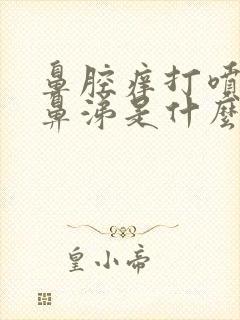 鼻腔痒打噴
鼻涕是什麼
皇小帝